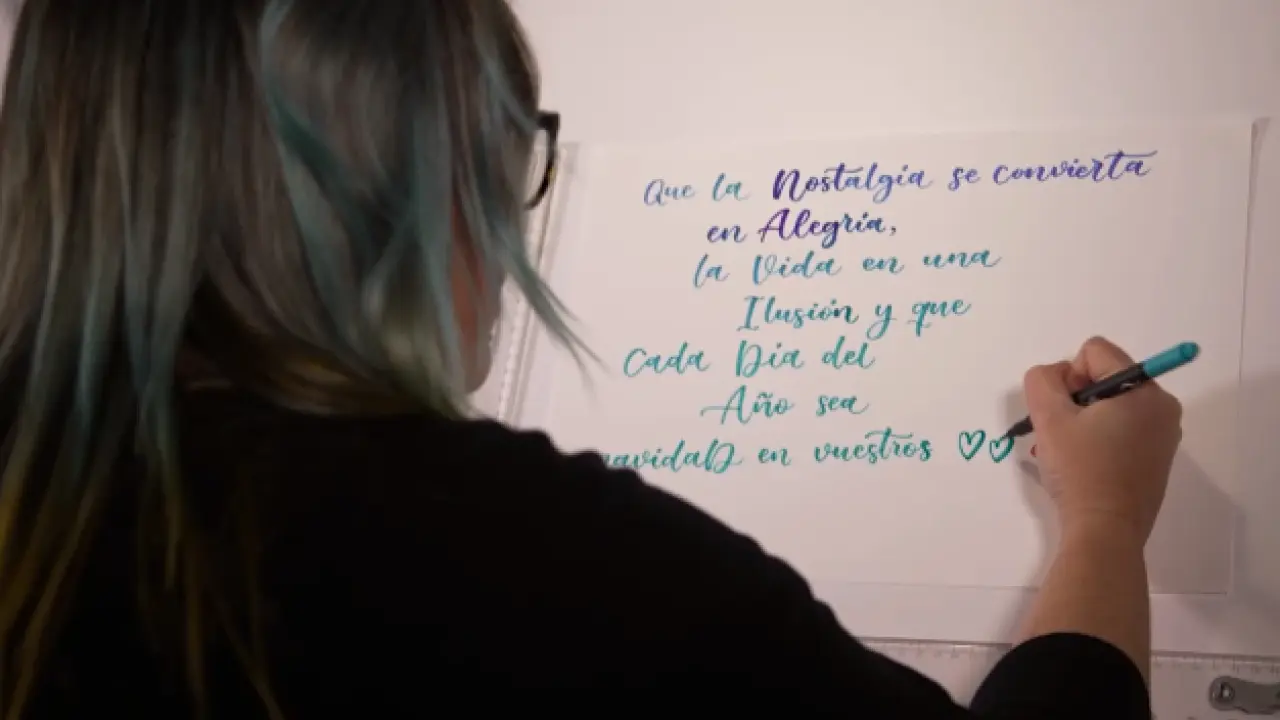 Que la Nostalgia se convierta
en Alegría,
la Vida en una
Ilusión y que
Cada Dia del
Año sea
navidaD en vuestros ♡♡